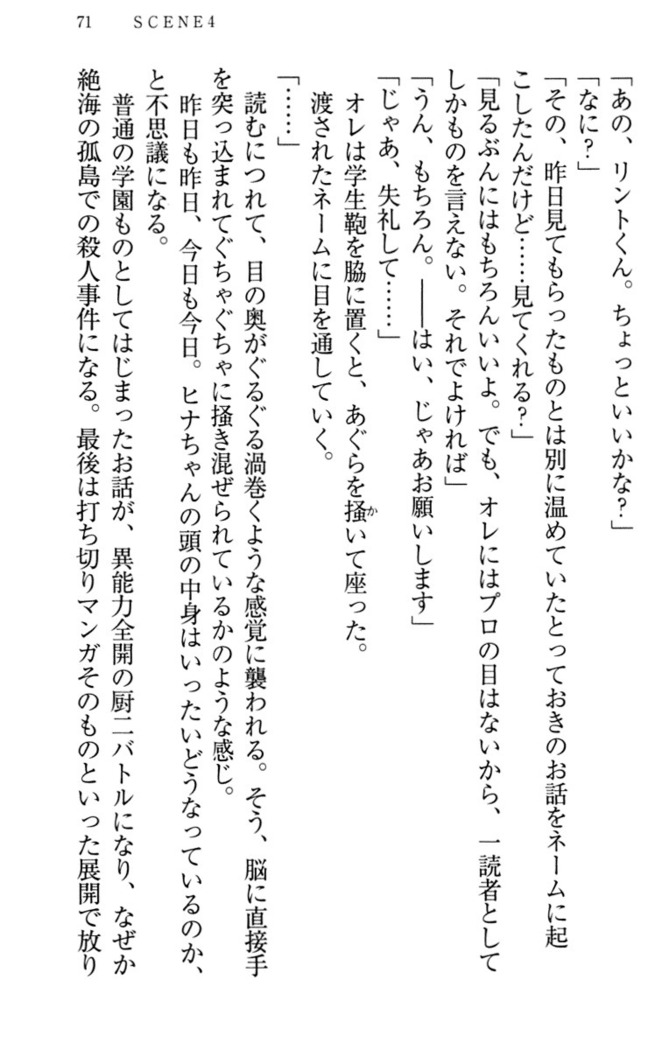 71 SCENE4
「あの、リントくん。ちょっといいかな？」
「なに？」
「その、昨日見てもらったものとは別に温めていたとっておきのお話をネームに起
こしたんだけど……見てくれる？」
「見るぶんにはもちろんいいよ。でも、オレにはプロの目はないから、一読者として
しかものを言えない。それでよければ」
「うん、もちろん。――はい、じゃあお願いします」
「じゃあ、失礼して……」
オレは学生鞄を脇に置くと、あぐらを掻いて座った。
か
渡されたネームに目を通していく。
「……」
読むにつれて、目の奥がぐるぐる渦巻くような感覚に襲われる。そう、脳に直接手
を突っ込まれてぐちゃぐちゃに掻き混ぜられているかのような感じ。
昨日も昨日、今日も今日。ヒナちゃんの頭の中身はいったいどうなっているのか、
と不思議になる。
普通の学園ものとしてはじまったお話が、異能力全開の厨二バトルになり、なぜか
絶海の孤島での殺人事件になる。最後は打ち切りマンガそのものといった展開で放り